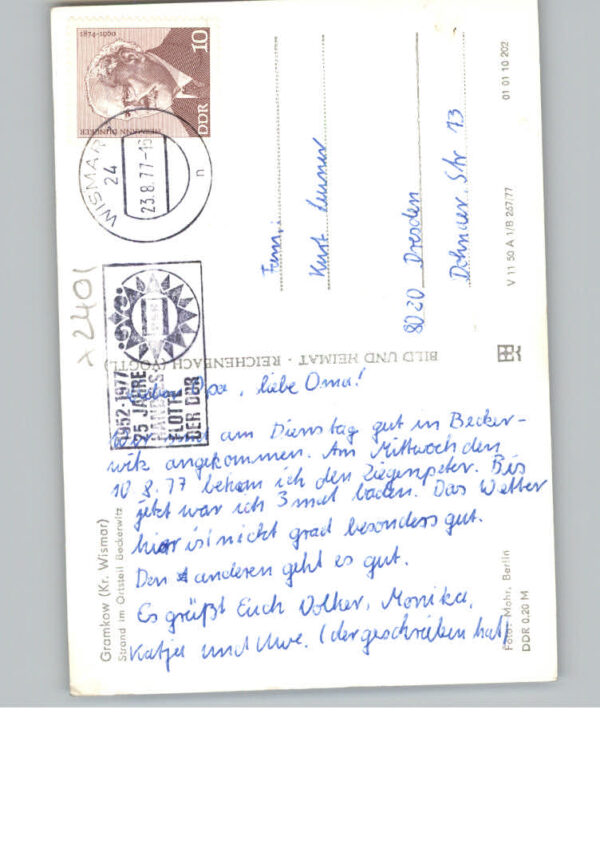 1874-1960
HERMANN DUNCKER
DDR
10
WISMAR
24
23.8.77-16
n
1952-1977
25 JAHRE
HANDELS
FLOTTE
DER DDR
λ 2401
Fam.
Kurt
8020 Dresden
Dohnaer Str 73
BILD UND HEIMAT · REICHENBACH (VOGTL)
V 11 50 A 1/B 267/77
01 01 10 202
Lieber Opa, liebe Oma!
Wir sind am Dienstag gut in Becker-
witz angekommen. Am Mittwoch den
10 8.77 bekam ich den Ziegenpeter. Bis
jetzt war ich 3 mal baden. Das Wetter
hier ist nicht grad besonders gut.
Den anderen geht es gut.
Es grüßt Euch Volker, Monika,
Katja und Uwe. (der geschrieben hat)
Gramkow (Kr. Wismar)
Strand im Ortsteil Beckerwitz
Foto: Mohr, Berlin
DDR 0,20 M